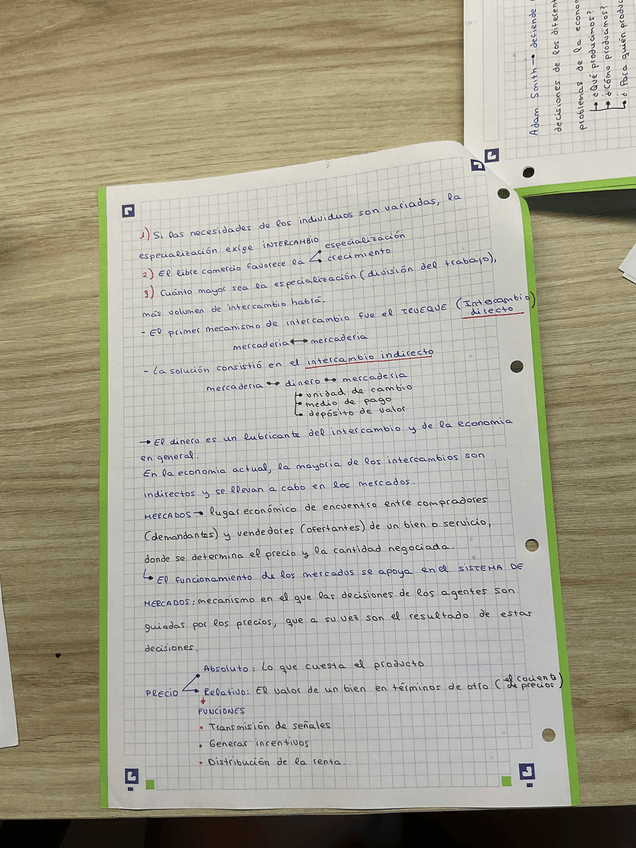 Adam Smith → defiende
decisiones de los diferent
problemas de la econom
↳ ¿Qué producimos?
↳ ¿Cómo producimos?
↳ ¿Para quién produc
1) Si las necesidades de los individuos son variadas, la
especialización exige INTERCAMBIO
2) El libre comercio favorece la < especialización
crecimiento
3) Cuánto mayor sea la especialización (división del trabajo),
más volumen de intercambio habrá.
- El primer mecanismo de intercambio fue el TRUEQUE (Intercambio
directo)
mercaderia ↔ mercaderia
- La solución consistió en el intercambio indirecto
mercaderia ↔ dinero ↔ mercaderia
↳ unidad de cambio
↳ medio de pago
↳ depósito de valor
→ El dinero es un lubricante del intercambio y de la economia
en general.
En la economia actual, la mayoria de los intercambios son
indirectos y se llevan a cabo en los mercados.
MERCADOS → lugar económico de encuentro entre compradores
(demandantes) y vendedores (ofertantes) de un bien o servicio,
donde se determina el precio y la cantidad negociada.
↳ El funcionamiento de los mercados se apoya en el SISTEMA DE
MERCADOS: mecanismo en el que las decisiones de los agentes son
guiadas por los precios, que a su vez son el resultado de estas
decisiones.
Absoluto: Lo que cuesta el producto
PRECIO < Relativo: El valor de un bien en términos de otro (el cociente
de precios)
FUNCIONES
• Transmisión de señales
• Generar incentivos
• Distribución de la renta.